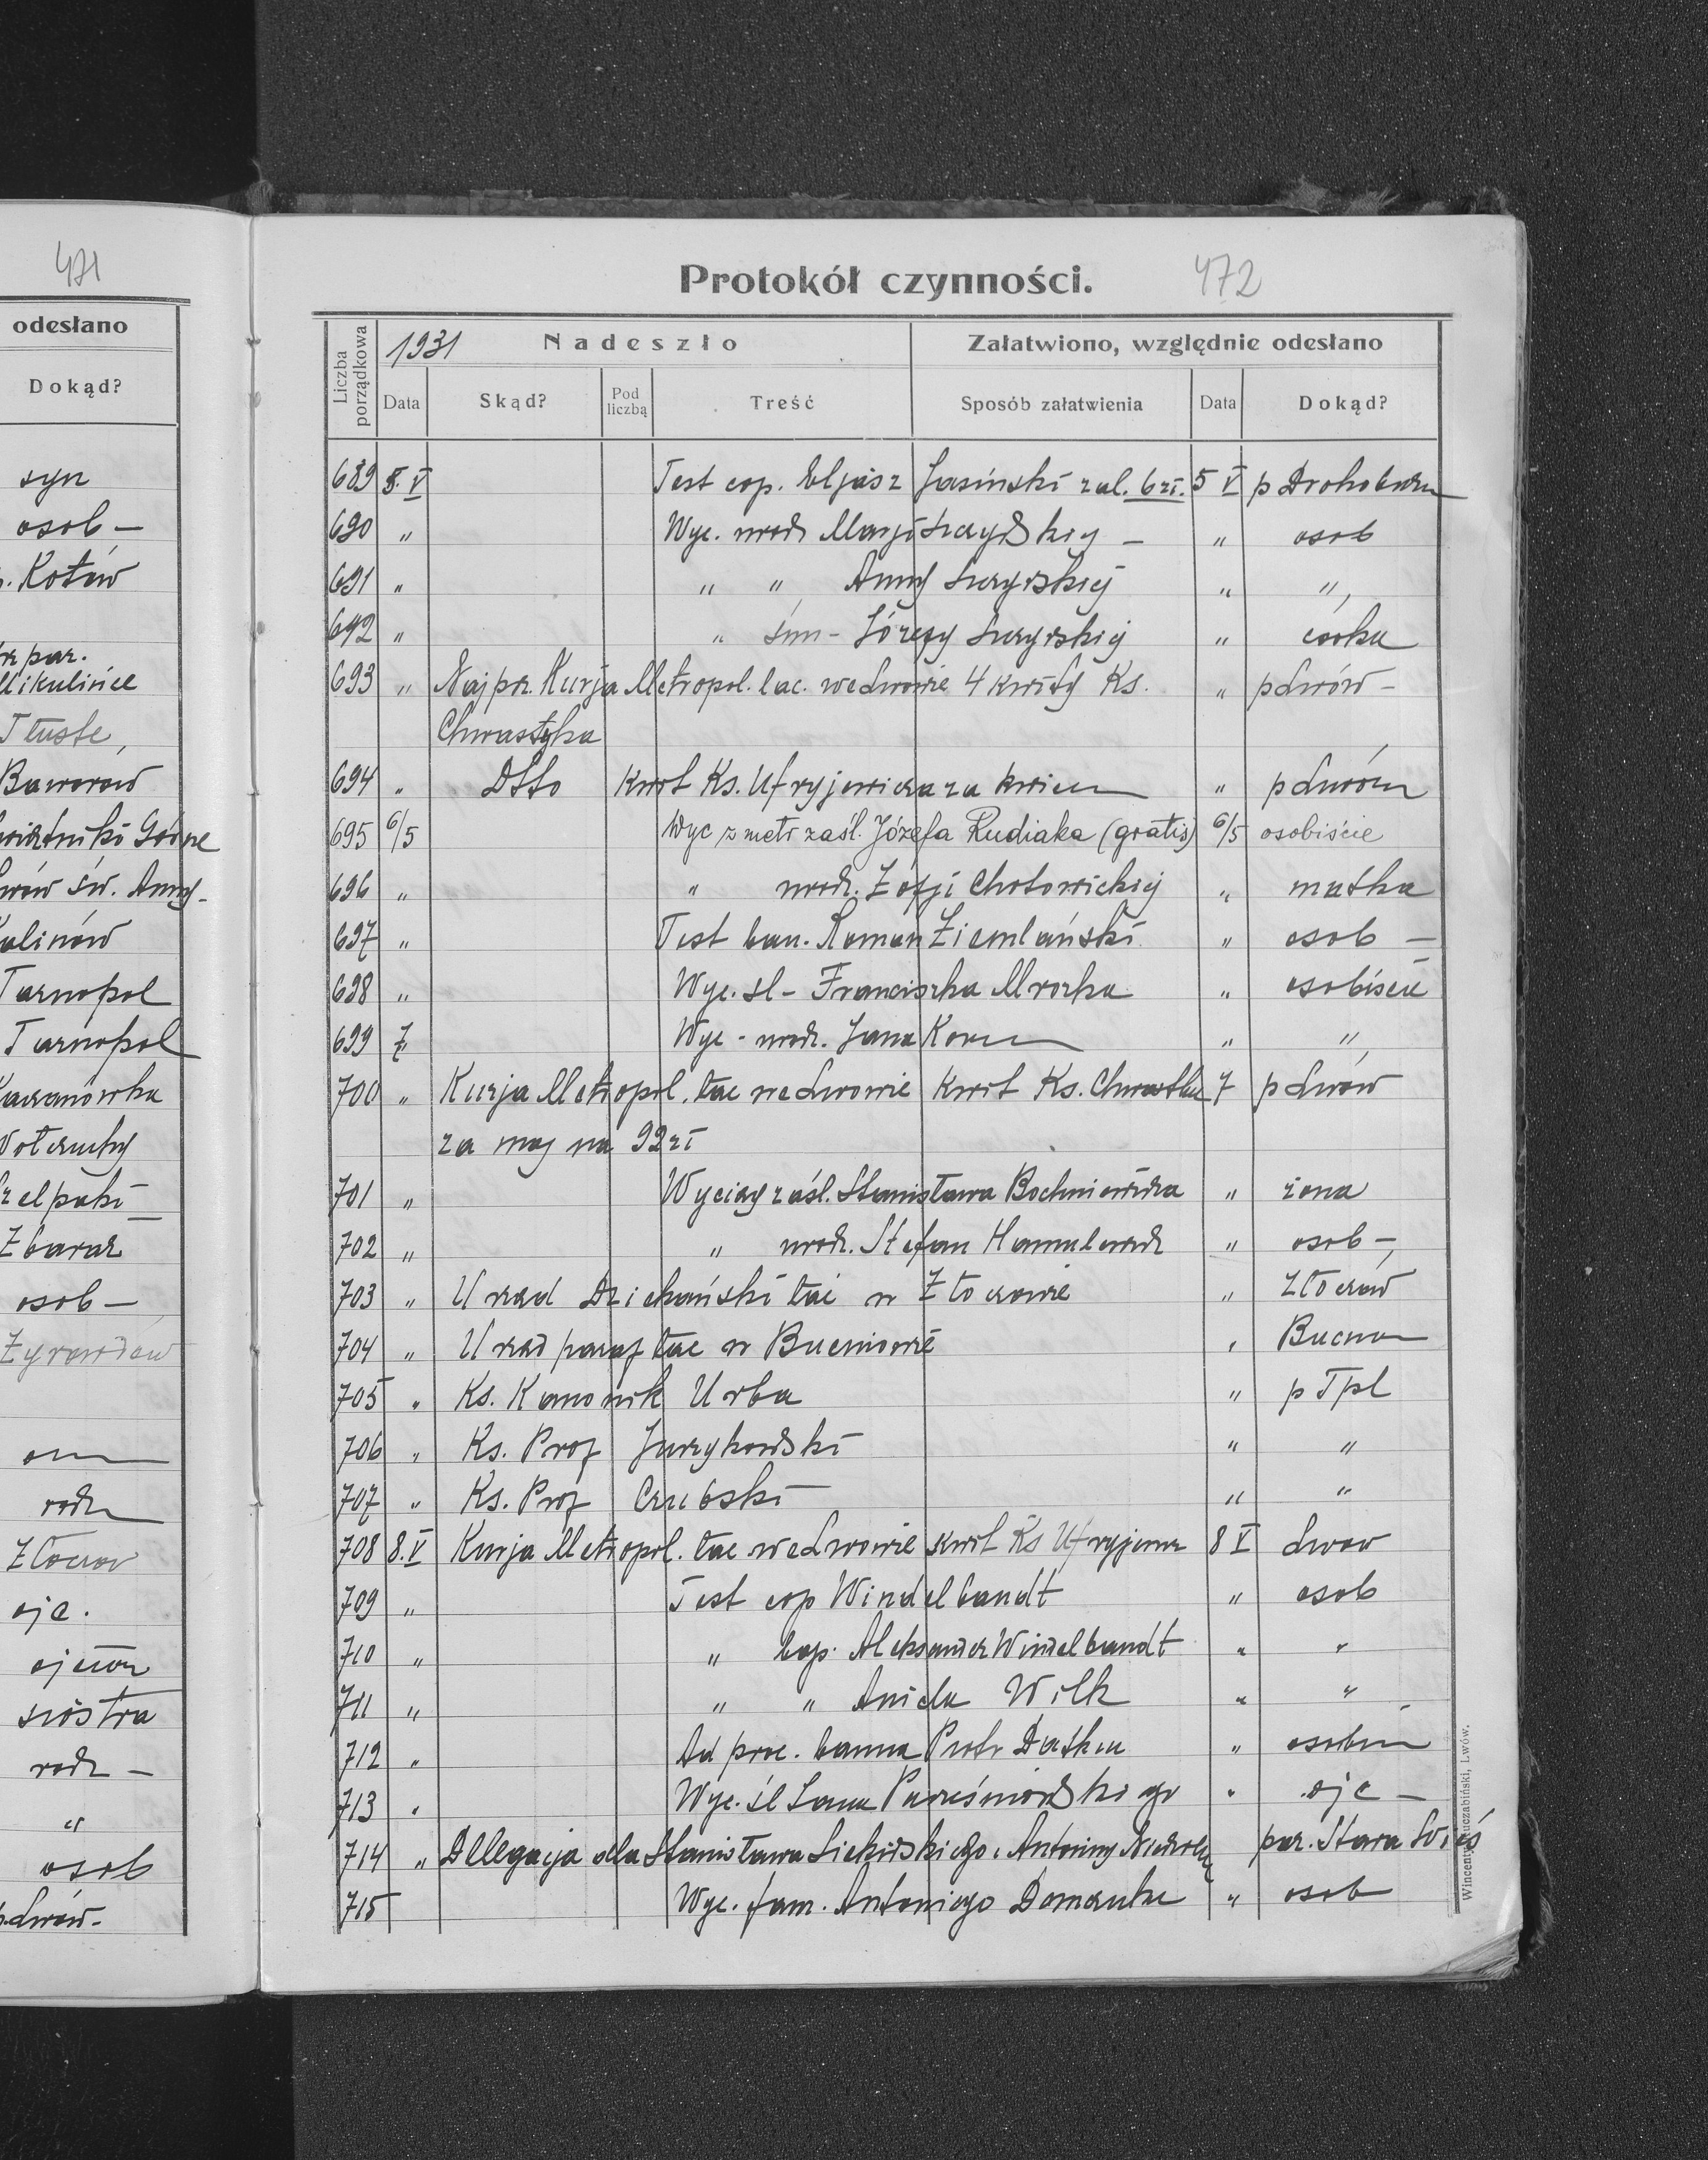 471
odesłano
Dokąd?
syn
osob —
p. Kotów
par.
Mikulińce
Tłuste,
Baworów
Górne
Lwów św. Anny -
Kalinów
Tarnopol
Tarnopol
Kaczanówka
Zbaraż
osob —
Żyrardów
rodz
Złoczow
ojc.
ojciec
siostra
rodz —
"
osob
p. Lwów -
Protokół czynności. 472
Liczba porządkowa 1931 Nadeszło Załatwiono, względnie odesłano
Data Skąd? Pod liczbą Treść Sposób załatwienia Data Dokąd?
689 5.V Test cop. Eljasz Jasiński zał. 6 zł. 5 V p Drohobycz
690 " Wyc. urodz Marji — " osob
691 " " " Anny " "
692 " " śm - Józefy " córka
693 " Najprz. Kurja Metropol. łac. we Lwowie 4 kwity Ks. " p Lwów -
Chwastyka
694 " Dtto kwit Ks. Ufryjewicza za kwiec " p Lwów
695 6/5 Wyc z metr zaśl. Józefa Rudiaka (gratis) 6/5 osobiście
696 " " urodz. Zofji Chotowickiej " matka
697 " Test ban. Roman Ziemlański " osob —
698 " Wyc. śl - Franciszka Mroczka " osobiście
699 7 Wyc - urodz. Jana " "
700 " Kurja Metropol. łac we Lwowie kwit Ks. Chwastka 7 p Lwów
za maj na 92 zł
701 " Wyciąg zaśl. Stanisława Bochniewicza " żona
702 " " urodz. Stefan " osob —
703 " Urząd Dziekański łać w Złoczowie " Złoczów
704 " Urząd paraf łac w Bucniowie " Bucnow
705 " Ks. Kanonik Urba " p Tpl
706 " Ks. Prof Jurzykowski " "
707 " Ks. Prof Czubski " "
708 8.V Kurja Metropol. łac we Lwowie kwit Ks Ufryjewicz 8 V Lwow
709 " Test cop Windelbandt " osob
710 " " bap. Aleksander Windelbandt " "
711 " " " Aniela Wilk " "
712 " Ad proc. banna Piotr "
713 " Wyc. śl Jana " ojc —
714 " Delegacja dla Stanisława i Antoniny par. Stara Wieś
715 Wyc. fam. Antoniego " osob
Lwów.